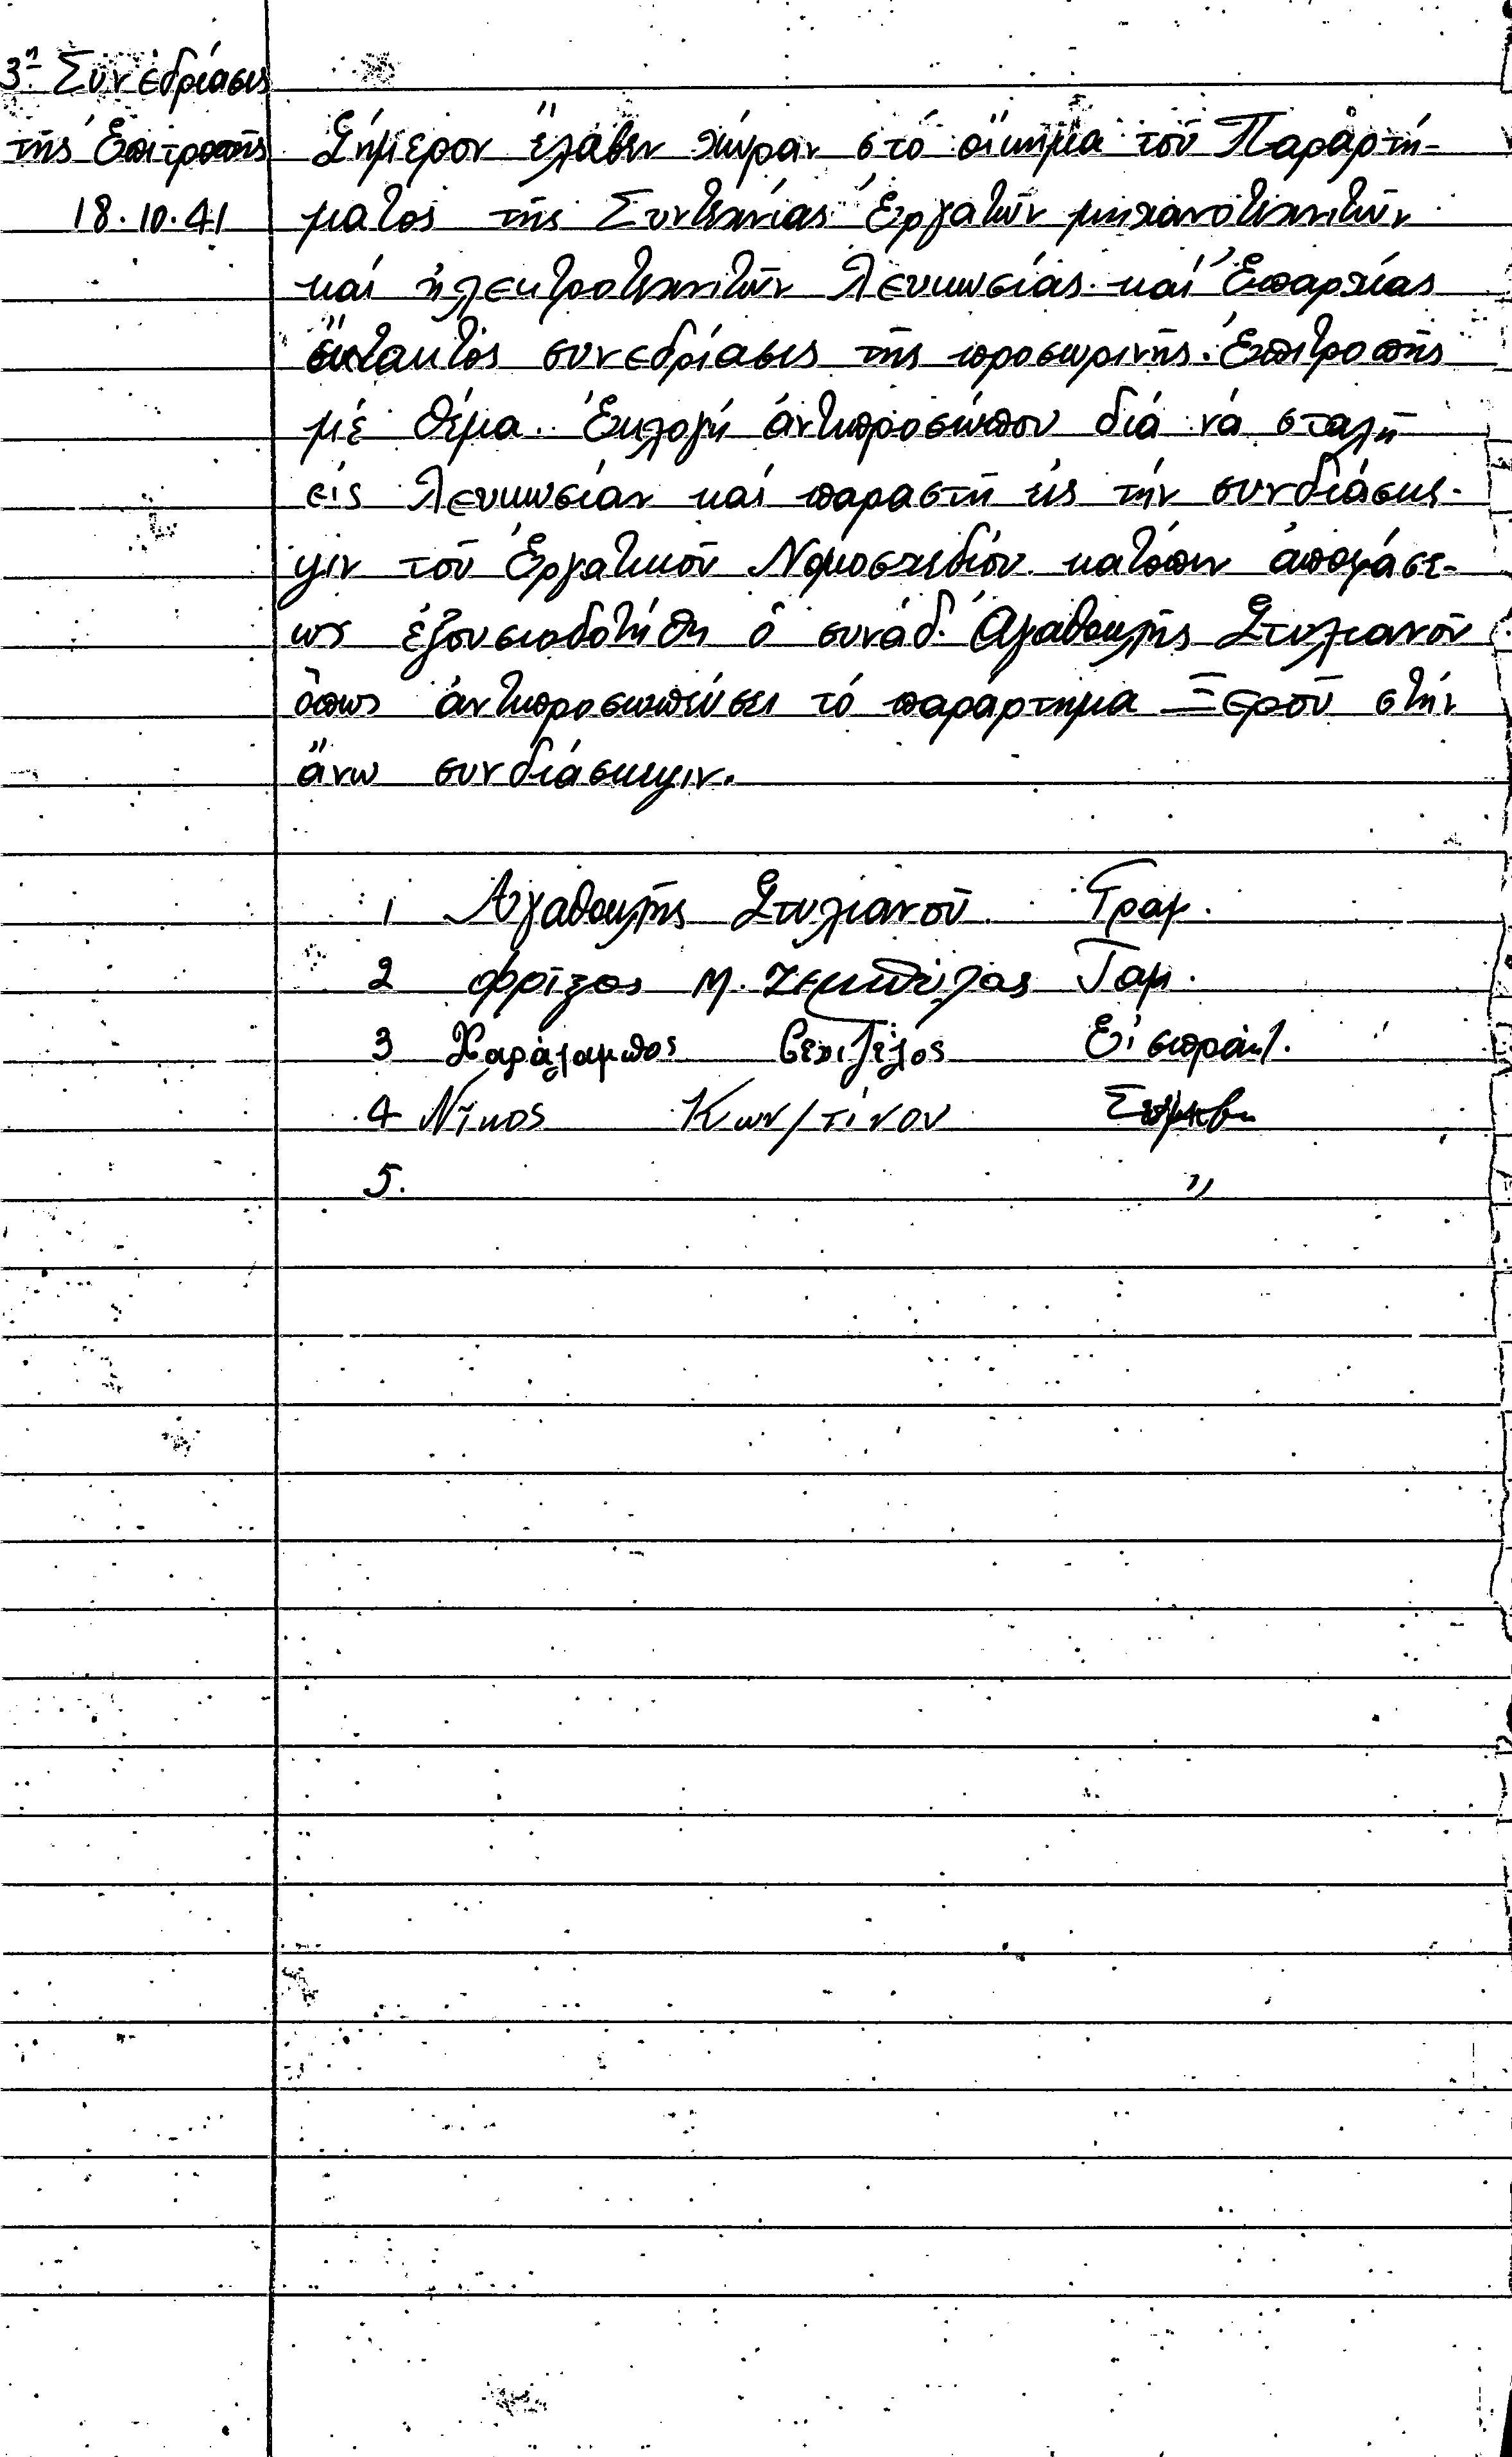 3η Συνεδρίασις
τῆς Ἐπιτροπῆς
18.10.41
Σήμερον ἔλαβεν χώραν στό οἴκημα τοῦ Παραρτή-
ματος τῆς Συντεχνίας Ἐργατῶν μηχανοτεχνιτῶν
καί ἠλεκτροτεχνιτῶν Λευκωσίας καί Ἐπαρχίας
ἔκτακτος συνεδρίασις τῆς προσωρινῆς Ἐπιτροπῆς
μέ θέμα. Ἐκλογή ἀντιπροσώπου διά νά σταλῆ
εἰς Λευκωσίαν καί παραστῆ εἰς τήν συνδιάσκε-
ψιν τοῦ Ἐργατικοῦ Νομοσχεδίου κατόπιν ἀποφάσε-
ως ἐξουσιοδοτήθη ὁ συνάδ. Ἀγαθοκλῆς Στυλιανοῦ
ὅπως ἀντιπροσωπεύσει τό παράρτημα Ξεροῦ στήν
ἄνω συνδιάσκεψιν.
1 Ἀγαθοκλῆς Στυλιανοῦ Γραμ.
2 Φρῖξος Μ. Ταμ.
3 Χαράλαμπος Εἰσπράκτ.
4 Νῖκος Κων/τίνου
5. "